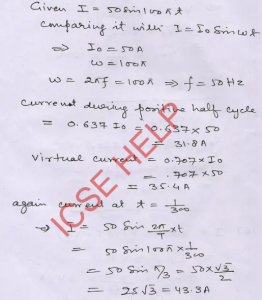 Given I = 50 Sin 100πt
comparing it with I = I0 Sin ωt
⇒ I0 = 50A
ω = 100π
ω = 2πf = 100π ⇒ f = 50 Hz
Current during positive half cycle
= 0.637 I0 = 0.637 × 50
= 31.8 A
Virtual current = 0.707 × I0
= .707 × 50
= 35.4 A
again current at t = 1/300
⇒ I = 50 Sin 2π/T × t
= 50 Sin 100π × 1/300
= 50 Sin π/3 = 50 × √3/2
= 25√3 = 43.3 A
ICSE HELP